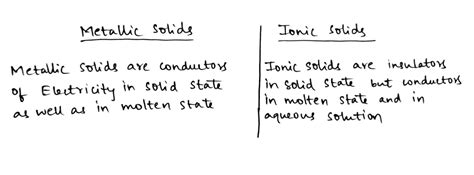 Metallic Solids
Metallic Solids are conductors
of Electricity in solid state
as well as in molten state
Ionic Solids
Ionic Solids are insulators
in solid state but conductors
in molten state and in
aqueous solution